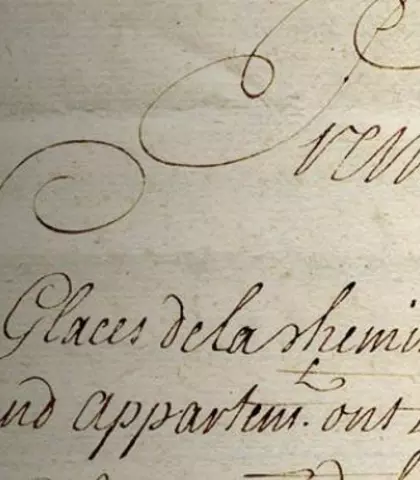 Prem
Glaces de la chemi
nd appartem.t ont